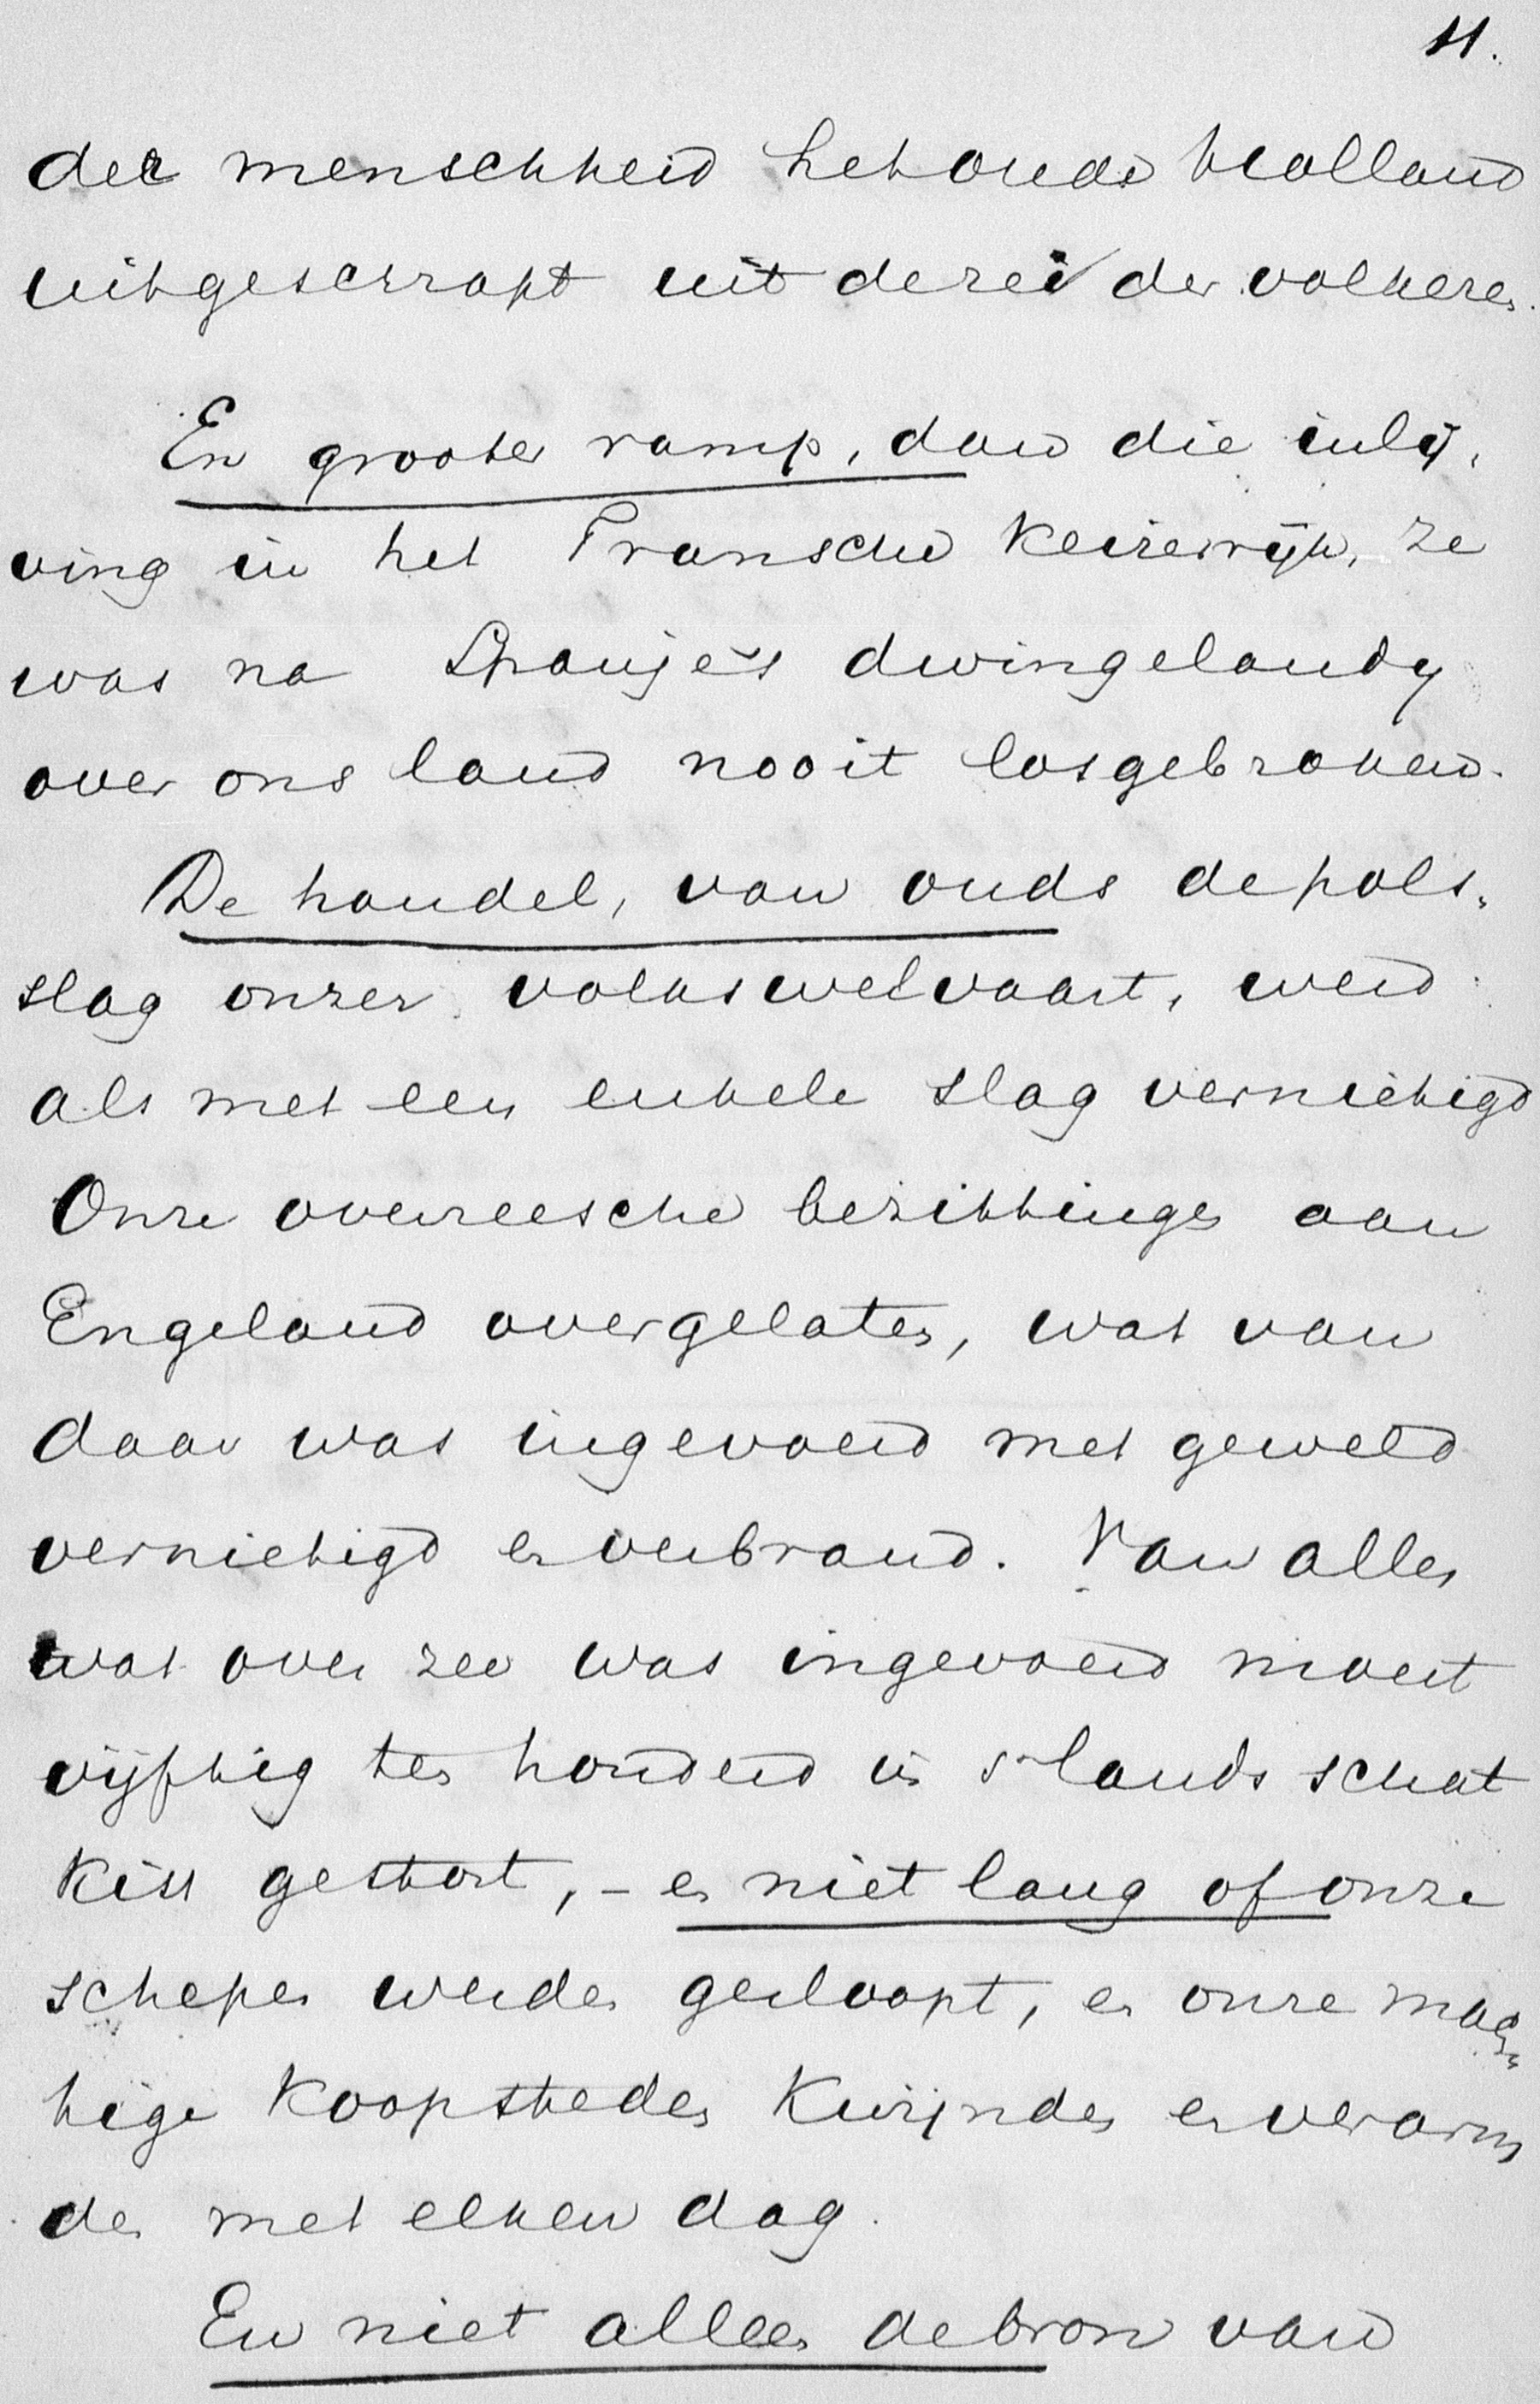 11.
der menschheid het oude Holland
uitgeschrapt uit de rei der volkeren.
En grooter ramp, dan die inlij„
ving in het Fransche Keizerrijk, ze
was na Spanje's dwingelandij
over ons land nooit losgebroken.
De handel, van ouds de pols„
slag onzer volkswelvaart, werd
als met een enkele slag vernietigd
Onze overzeesche bezittingen aan
Engeland overgelaten, wat van
daar was ingevoerd met geweld
vernietigd en verbrand. Van alles
wat over zee was ingevoerd moest
vijftig ten honderd in 's lands schat
kist gestort, - en niet lang of onze
schepen werden gesloopt, en onze mach„
tige Koopsteden Kwijnden en verarm
den met elken dag.
En niet alleen de bron van